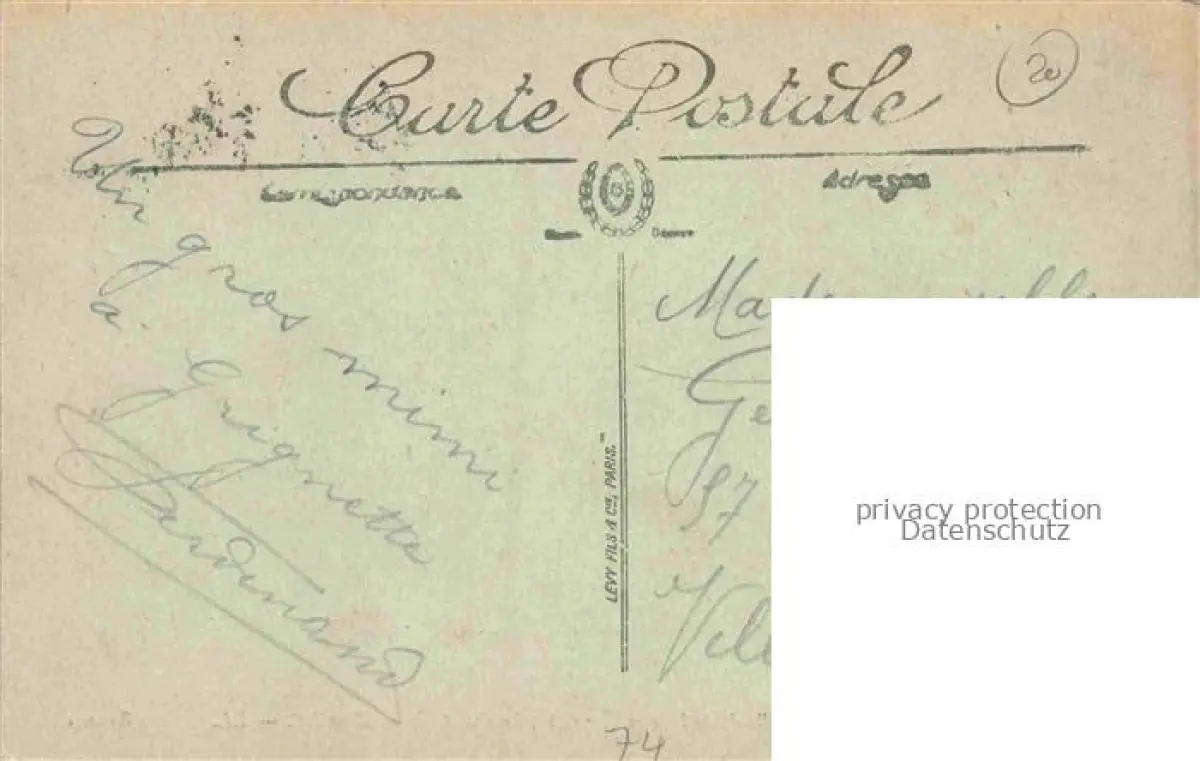 Carte Postale
20
Correspondance
Adresse
Un gros mimi
a Grignette
Ferdinand
LEVY FILS & Cie, PARIS.
Made
Ge
97
Vill
74
privacy protection
Datenschutz